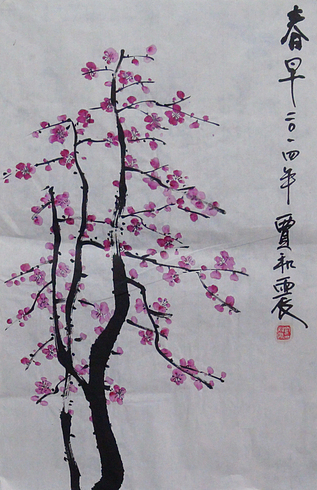 春早二〇一四年 賈和震